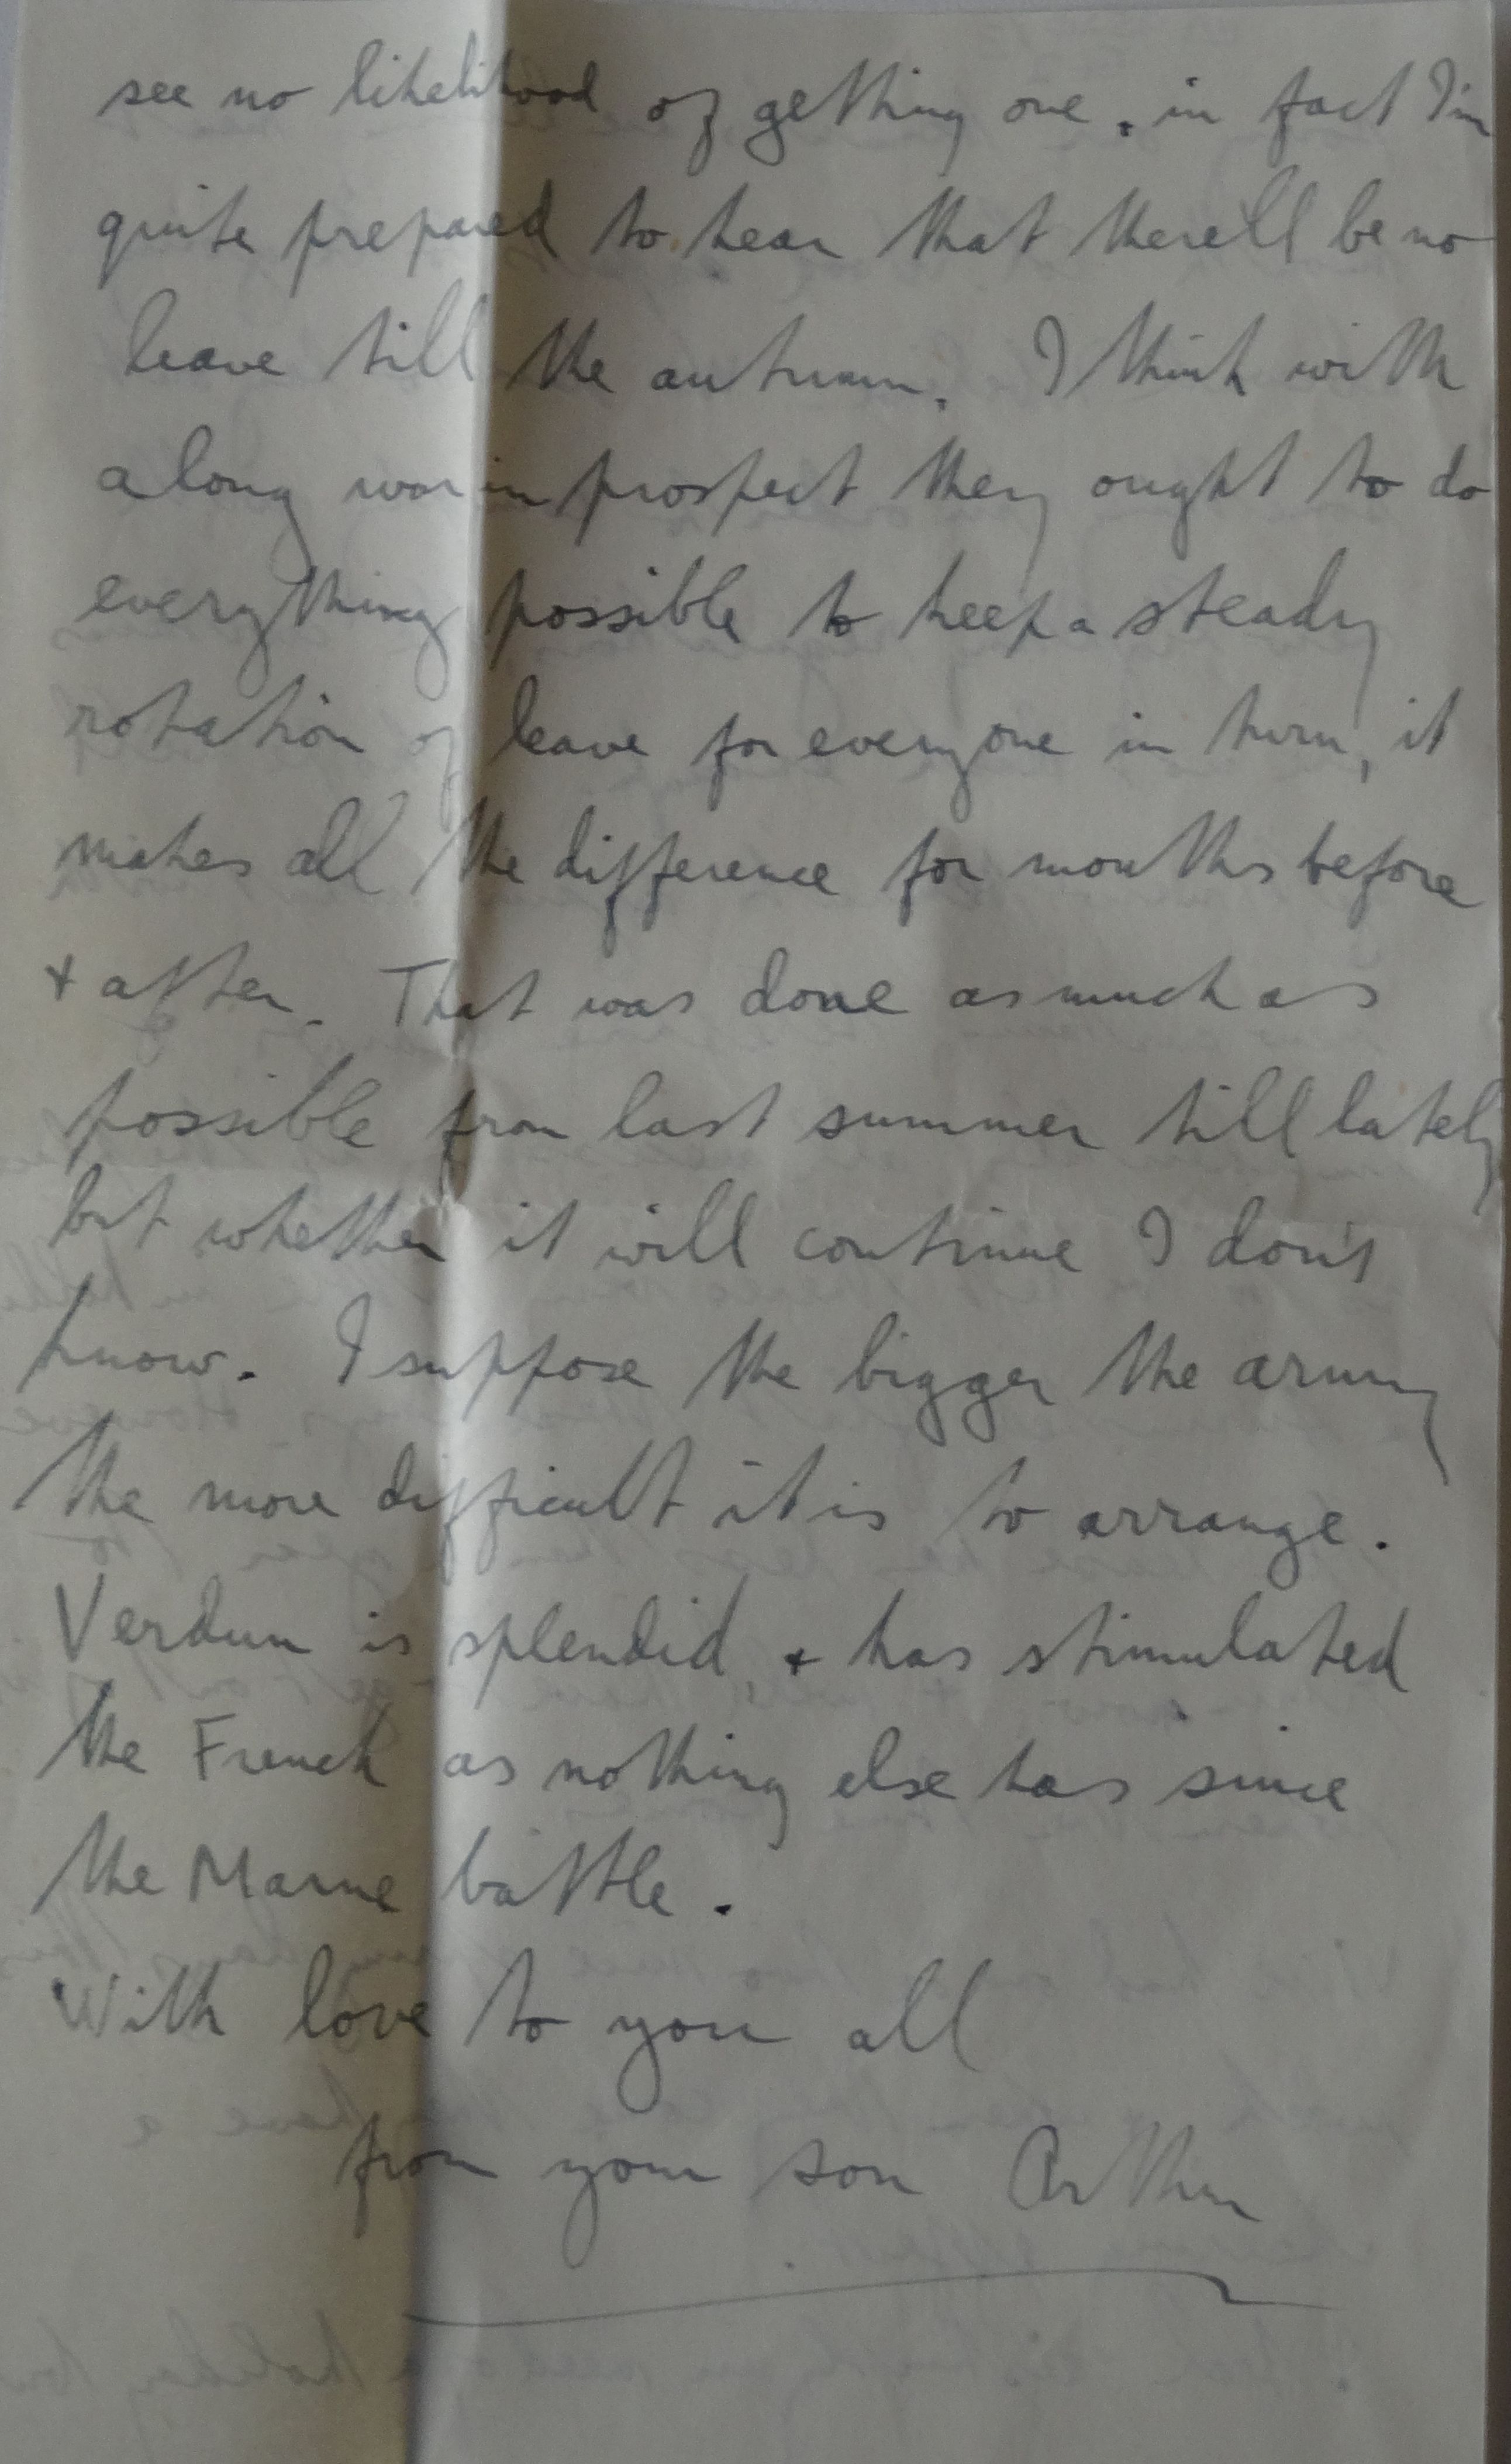 see no likelihood of getting one, in fact I'm
quite prepared to hear that there'll be no
leave till the autumn. I think with
a long war in prospect they ought to do
everything possible to keep a steady
rotation of leave for everyone in turn, it
makes all the difference for months before
+ after. That was done as much as
possible from last summer till lately
but whether it will continue I don't
know. I suppose the bigger the army
the more difficult it is to arrange.
Verdun is splendid, + has stimulated
the French as nothing else has since
the Marne battle.
With love to you all
from your son Arthur